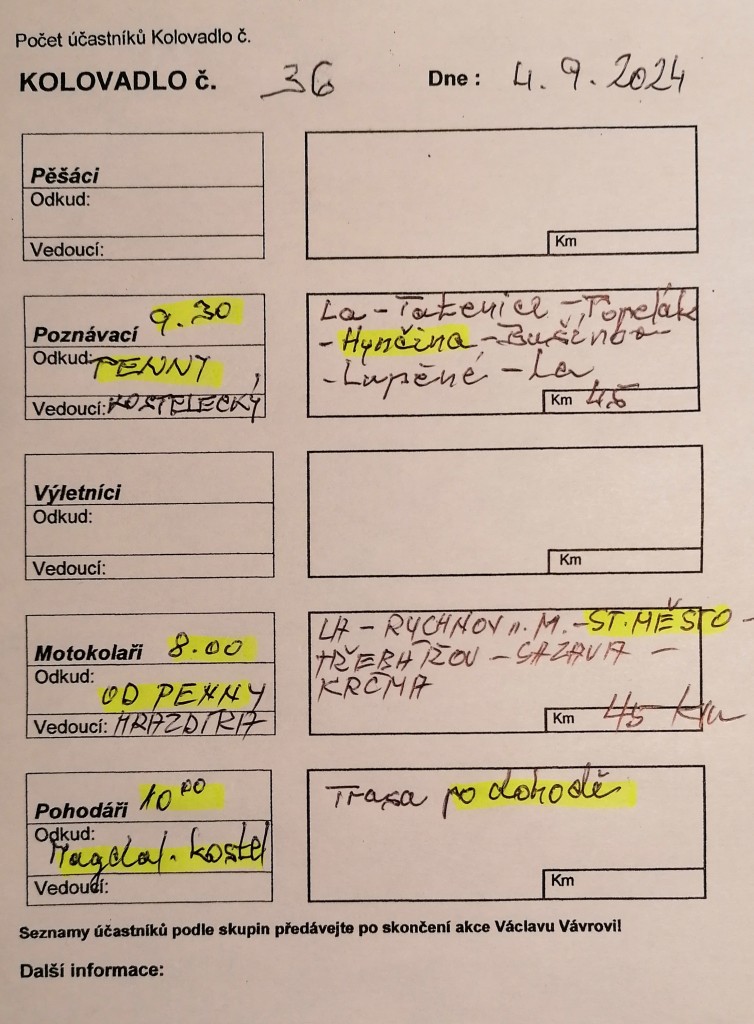 Počet účastníků Kolovadlo č.
KOLOVADLO č. 36 Dne : 4.9.2024
Pěšáci
Odkud:
Vedoucí:
Km
Poznávací 9.30
Odkud: PENNY
Vedoucí: KOSTELECKÝ
La - Tatenice - "Topelák
- Hynčina - Bušínov -
- Lupěné - La
Km 45
Výletníci
Odkud:
Vedoucí:
Km
Motokolaři 8.00
Odkud: OD PENNY
Vedoucí: HRAZDIRA
LA - RYCHNOV n. M. - ST. MĚSTO -
TŘEBAŘOV - SÁZAVA -
KRČMA
Km 45 km
Pohodáři 10 00
Odkud: Magdal. kostel
Vedoucí:
Trasa po dohodě
Km
Seznamy účastníků podle skupin předávejte po skončení akce Václavu Vávrovi!
Další informace: